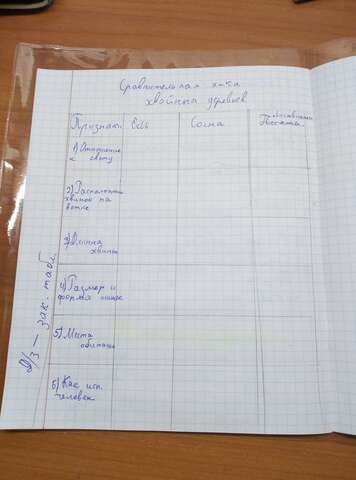 Сравнительная х-ка
хвойных деревьев
Признаки Ель Сосна
1) Отношение
к свету
2) Располож
хвоинок на
ветке
3) Длинна
хвоины
4) Размер и
форма шишек
5) Места
обитания
6) Как исп.
человек
Д/З - зак. табл.